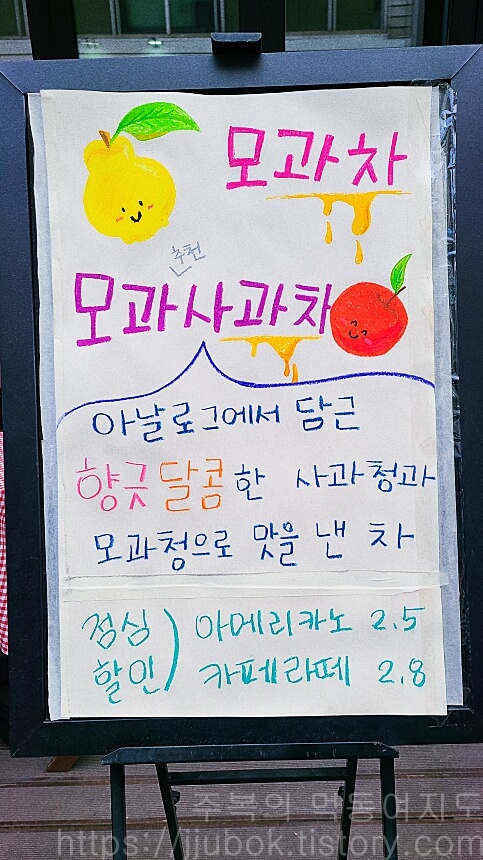 모과차
추천
모과사과차
아날로그에서 담근
향긋달콤한 사과청과
모과청으로 맛을 낸 차
점심 할인) 아메리카노 2.5
카페라떼 2.8
주복의 먹동여지도
https://jjubok.tistory.com